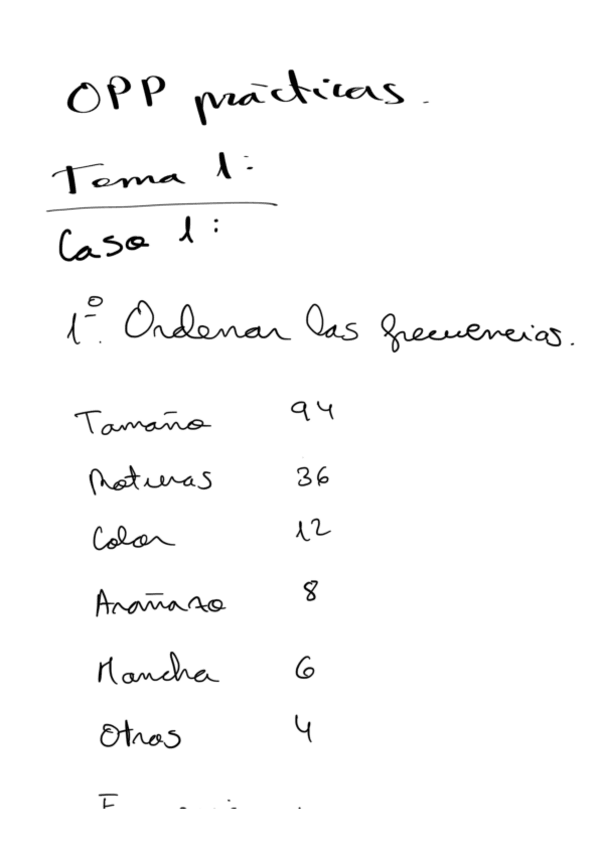 OPP prácticas.
Tema 1:
Caso 1:
1º. Ordenar las frecuencias.
Tamaño 94
Roturas 36
Color 12
Arañazo 8
Mancha 6
Otros 4